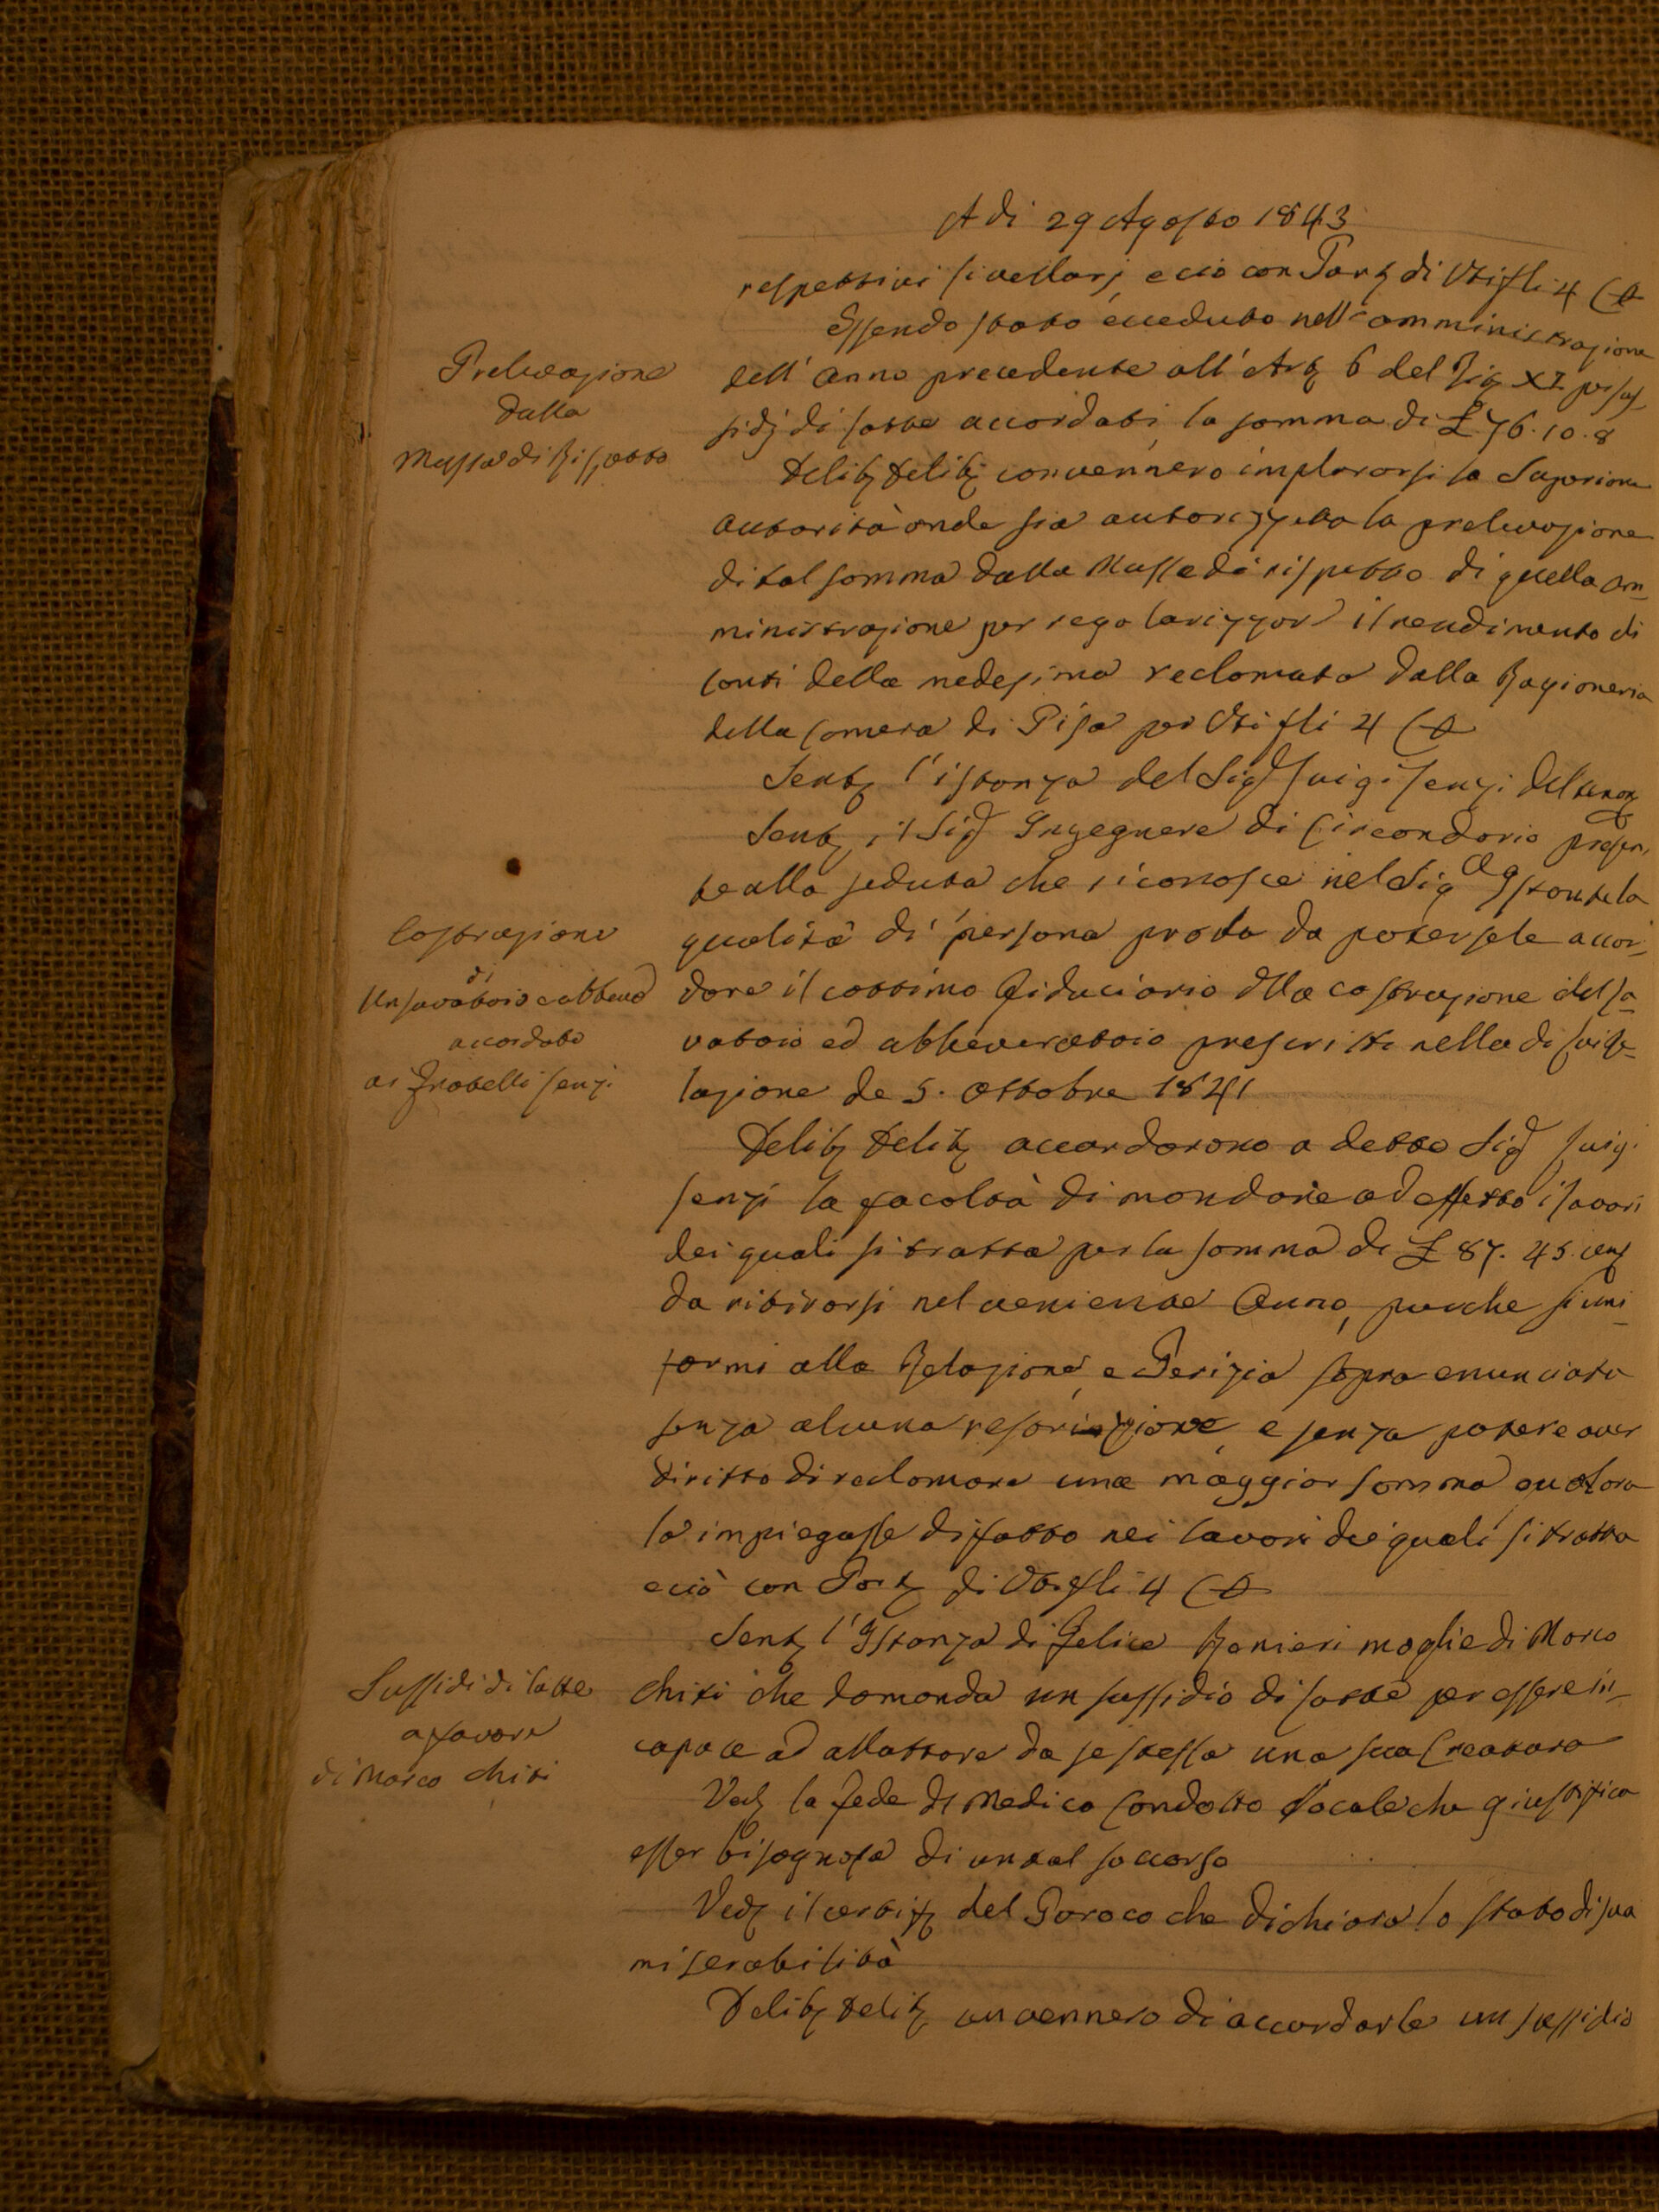 A di 29 Agosto 1843
respettivi livellarj, e ciò con Part di Vti fli 4 C
Essendo stato ecceduto nell'amministrazione
Prelevazione
dalla
Massa di Rispetto
dell' anno precedente all' Art 6 del Tit XI per sus-
sidj di latte accordati, la somma di £ 76.10.8
Delib Delib convennero implorarsi la Superiore
autorità onde sia autorizzata la prelevazione
di tal somma dalla Massa di rispetto di quella am-
ministrazione per regolarizzare il rendimento di
conti della medesima reclamato dalla Ragioneria
della Camera di Pisa per Vti fli 4 C
Sent l'istanza del Sig Luigi Lenzi del tenor
Sent il Sig Ingegnere di Circondario presen-
te alla seduta che riconosce nel Sig Istante la
Costruzione
di
un lavatoio e abbev
accordato
ai Fratelli Lenzi
qualità di persona proba da potersele accor-
dare il cottimo fiduciario della costruzione del la-
vatoio ed abbeveratoio prescritti nella di lui Re-
lazione de 5. Ottobre 1841
Delib Delib accordarono a detto Sig Luigi
Lenzi la facoltà di mandare ad effetto i lavori
dei quali si tratta per la somma di £ 87. 45. cent
da ritirarsi nel veniente Anno, purche si uni-
formi alla Relazione, e Perizia sopra enunciata
senza alcuna restrizione, e senza potere aver
diritto di reclamare una maggior somma qualora
la impiegasse di fatto nei lavori dei quali si tratta
e ciò con Part di Vti fli 4 C
Sent l'Istanza di Felice Ranieri moglie di Marco
Sussidi di latte
a favore
di Marco Chiti
Chiti che domanda un sussidio di latte per essere in-
capace ad allattare da se stessa una sua Creatura
Ved la fede del Medico Condotto locale che giustifica
esser bisognosa di un tal soccorso
Ved il certif del Paroco che dichiara lo stato di sua
miserabilità
Delib Delib convennero di accordarle un sussidio